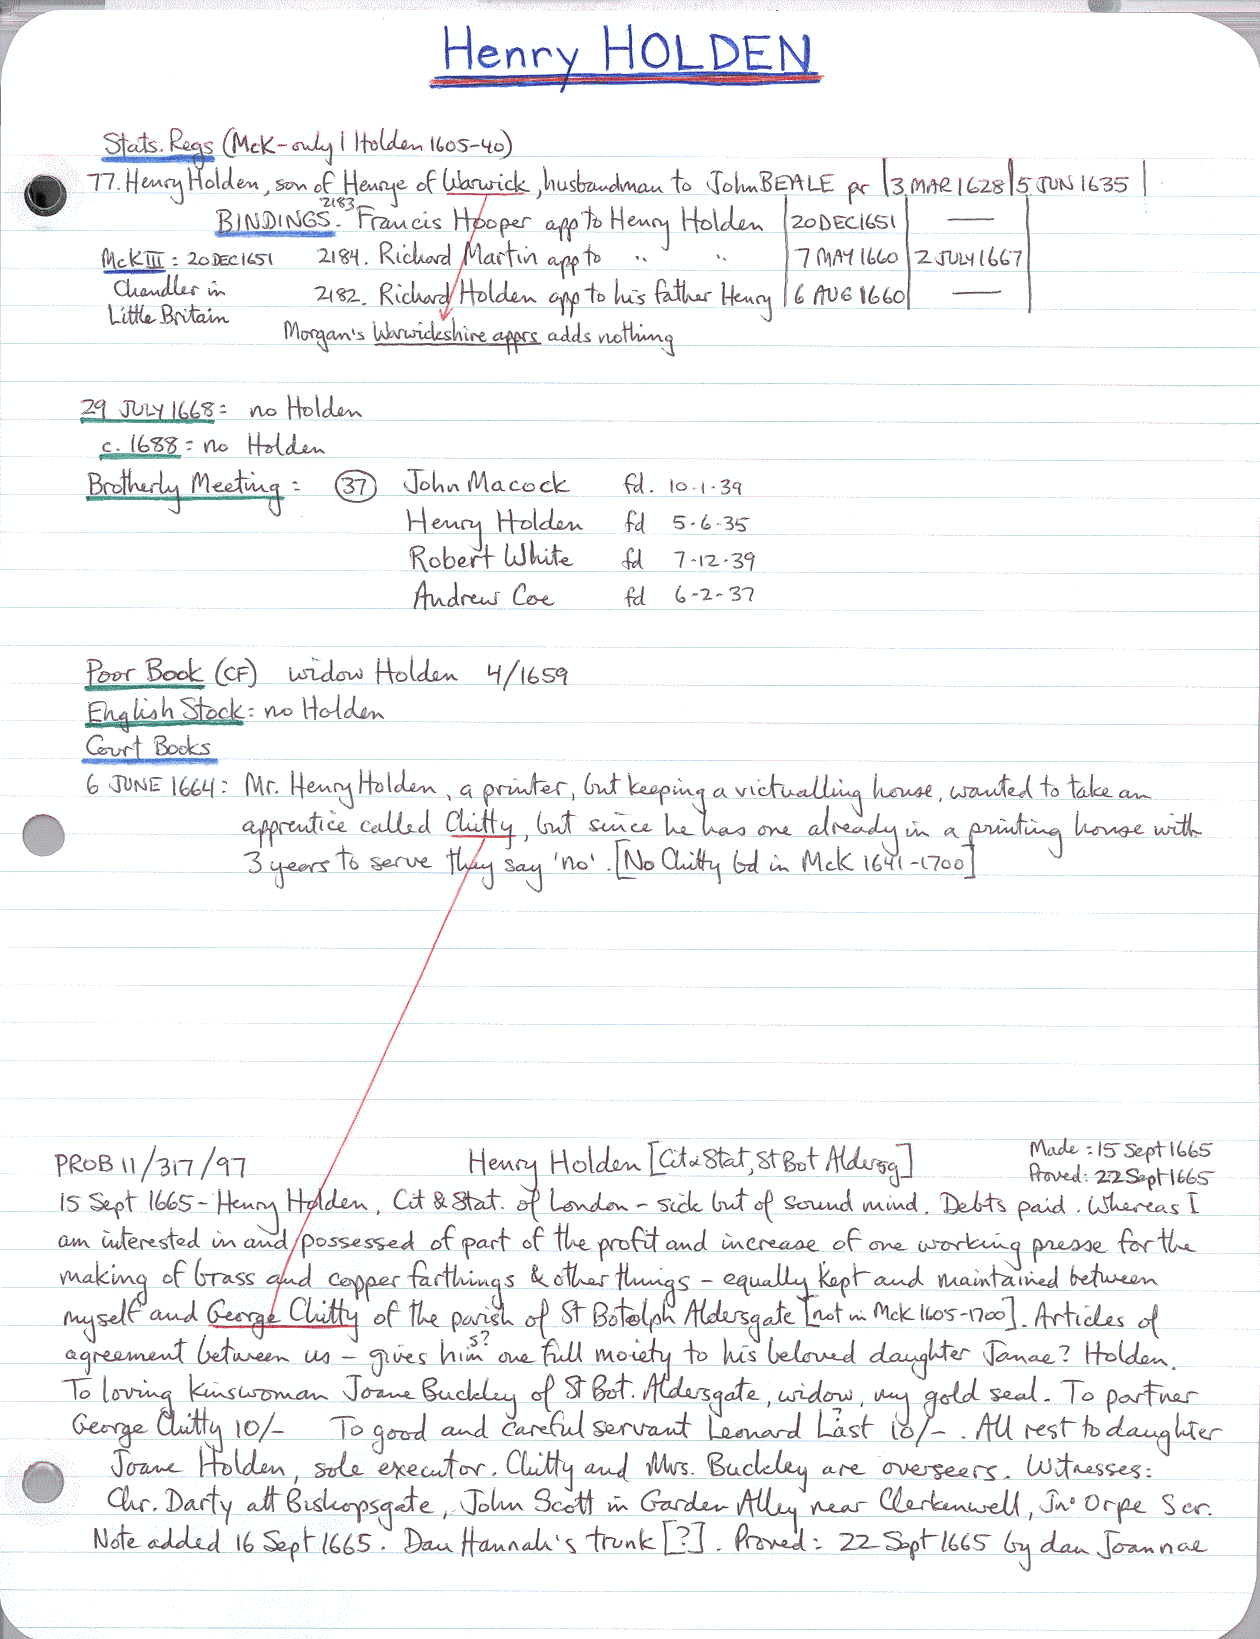 Henry HOLDEN
Stats. Regs (McK-only 1 Holden 1605-40)
77. Henry Holden, son of Henrye of Warwick, husbandman to John BEALE pr 3 MAR 1628 5 JUN 1635
BINDINGS. 2183. Francis Hooper app to Henry Holden 20 DEC 1651 —
McK III : 20 DEC 1651 2184. Richard Martin app to " " 7 MAY 1660 2 JULY 1667
Chandler in 2182. Richard Holden app to his father Henry 6 AUG 1660 —
Little Britain
Morgan's Warwickshire apprs adds nothing
29 JULY 1668 = no Holden
c. 1688 = no Holden
Brotherly Meeting = 37 John Macock fd. 10-1-39
Henry Holden fd 5-6-35
Robert White fd 7-12-39
Andrew Coe fd 6-2-37
Poor Book (CF) widow Holden 4/1659
English Stock : no Holden
Court Books
6 JUNE 1664 : Mr. Henry Holden, a printer, but keeping a victualling house, wanted to take an
apprentice called Chitty, but since he has one already in a printing house with
3 years to serve they say 'no'. [No Chitty bd in McK 1641-1700]
PROB 11/317/97 Henry Holden [Cit & Stat, St Bot Aldersg] Made : 15 Sept 1665
Proved : 22 Sept 1665
15 Sept 1665 - Henry Holden, Cit & Stat. of London - sick but of sound mind. Debts paid. Whereas I
am interested in and possessed of part of the profit and increase of one working presse for the
making of brass and copper farthings & other things - equally kept and maintained between
myself and George Chitty of the parish of St Botolph Aldersgate [not in McK 1605-1700]. Articles of
agreement between us - gives him s? one full moiety to his beloved daughter Janae? Holden.
To loving kinswoman Joane Buckley of St Bot. Aldersgate, widow, my gold seal. To partner
George Chitty 10/- To good and careful servant Leonard Last ? 10/-. All rest to daughter
Joane Holden, sole executor. Chitty and Mrs. Buckley are overseers. Witnesses :
Chr. Darty att Biskopsgate, John Scott in Garden Alley near Clerkenwell, Jno Orpe Scr.
Note added 16 Sept 1665. Dau Hannah's trunk [?]. Proved : 22 Sept 1665 by dau Joannae